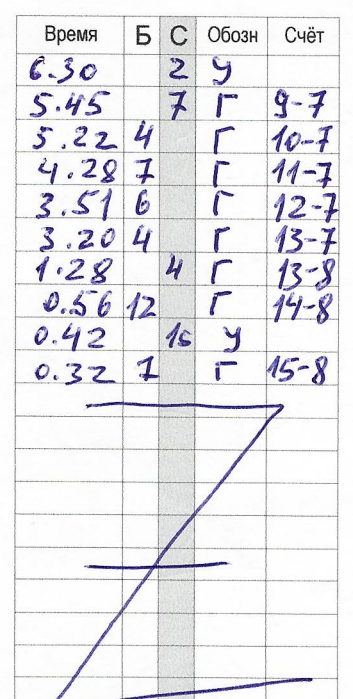 Время Б С Обозн Счёт
6.30 2 У
5.45 7 Г 9-7
5.22 4 Г 10-7
4.28 7 Г 11-7
3.51 6 Г 12-7
3.20 4 Г 13-7
1.28 4 Г 13-8
0.56 12 Г 14-8
0.42 У
0.32 7 Г 15-8